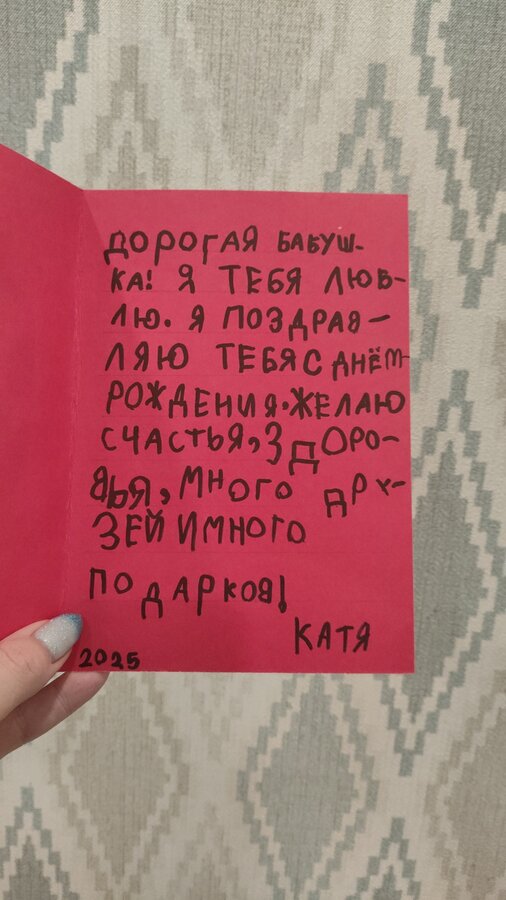 ДОРОГАЯ БАБУШ-
КА! Я ТЕБЯ ЛЮБ-
ЛЮ. Я ПОЗДРАВ-
ЛЯЮ ТЕБЯ С ДНЁМ-
РОЖДЕНИЯ. ЖЕЛАЮ
СЧАСТЬЯ, ЗДОРО-
ВЬЯ, МНОГО ДРУ-
ЗЕЙ И МНОГО
ПОДАРКОВ!
КАТЯ
2025